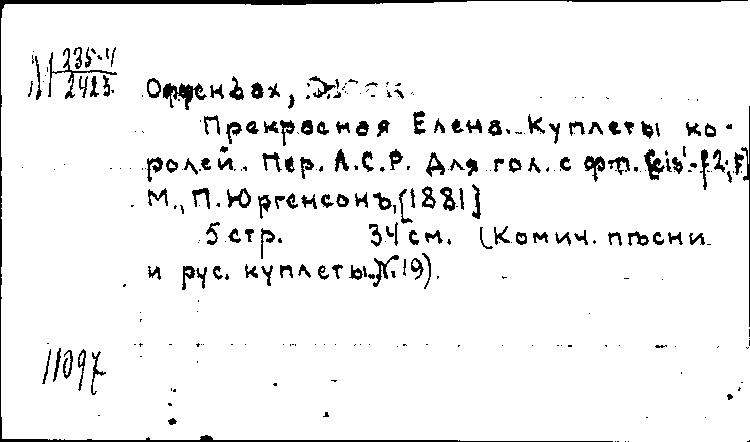 М 235-4
2423
Оффенбах, Жак
Прекрасная Елена. Куплеты ко-
ролей. Пер. А.С.Р. Для гол. с фп. [cis¹-f2; F]
М., П. Юргенсонъ, [1881]
5 стр. 34 см. (Комич. пѣсни
и рус. куплеты. № 19).
11097